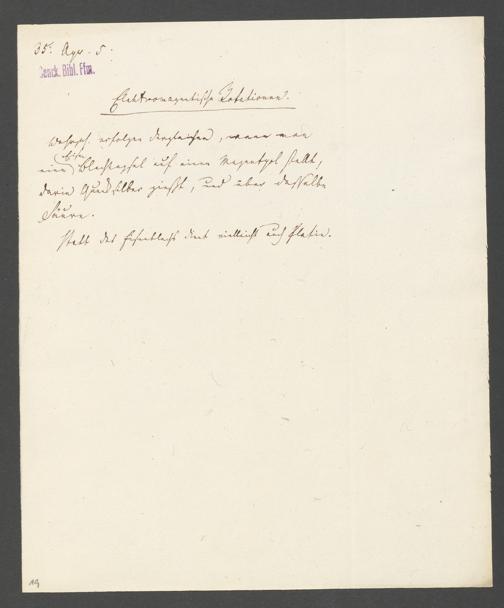 35. Apr. 5.
Senck. Bibl. Ffm.
Elektromagnetische Rotationen.
Wahrsch. erfolgen dergleichen, wenn man
Eisen
ein Blechkapsel auf einen Magnetpol stellt,
darin Quecksilber gießt, und über dasselbe
Säure.
Statt des Eisenblechs dient vielleicht auch Platin.
19